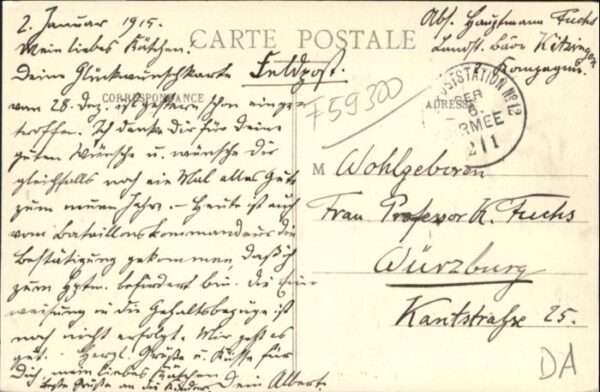 2. Januar 1915.
Mein liebes Käthchen!
Deine Glückwunschkarte
vom 28. Dez. ist gestern schon einge-
troffen. Ich danke dir für Deine
guten Wünsche u. wünsche dir
gleichfalls noch ein Mal alles Gute
zum neuen Jahr. – Heute ist auch
vom Bataillonskommandeur die
Bestätigung gekommen, daß ich
zum Hptm. befördert bin. Die Ein-
weisung in die Gehaltsbezüge ist
noch nicht erfolgt. Mir geht es
gut. Herzl. Grüße u. Küsse für
Dich, mein liebes Käthchen
beste Grüße an die Kinder. Dein Albert.
CARTE POSTALE
CORRESPONDANCE
Feldpost.
F59300
Abs. Hauptmann Fuchs
Landst. Batl. Kitzingen
Kompagnie.
ADRESSE
POSTSTATION No 12
DER
6.
ARMEE
2/1
M Wohlgeboren
Frau Professor K. Fuchs
Würzburg
Kantstraße 25.
DA